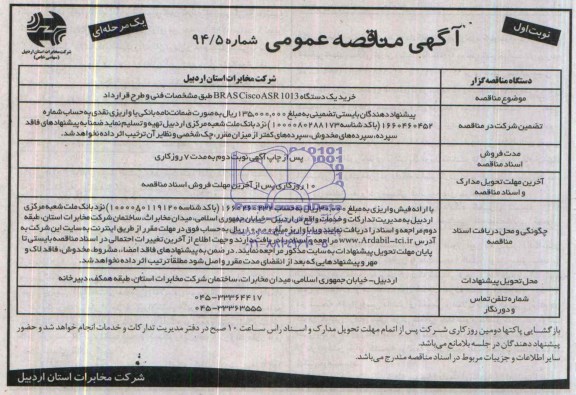 نوبت اول
آگهی مناقصه عمومی شماره ۹۴/۵
یک مرحله‌ای
شرکت مخابرات استان اردبیل
(سهامی خاص)
دستگاه مناقصه گزار
شرکت مخابرات استان اردبیل
موضوع مناقصه
خرید یک دستگاه BRAS Cisco ASR 1013 طبق مشخصات فنی و طرح قرارداد
تضمین شرکت در مناقصه
پیشنهاد دهندگان بایستی تضمینی به مبلغ ۱۳۵,۰۰۰,۰۰۰ ریال به صورت ضمانت‌نامه بانکی یا واریز نقدی به حساب شماره
۱۶۶۰۴۶۰۴۵۲ (با کد شناسه ۱۰۰۰۰۸۰۲۸۸۱۷۳) نزد بانک ملت شعبه مرکزی اردبیل تهیه و تسلیم نماید ضمناً به پیشنهادهای فاقد
سپرده، سپرده‌های مخدوش، سپرده‌های کمتر از میزان مقرر، چک شخصی و نظایر آن ترتیب اثر داده نخواهد شد.
مدت فروش
اسناد مناقصه
پس از چاپ آگهی نوبت دوم به مدت ۷ روز کاری
آخرین مهلت تحویل مدارک
و اسناد مناقصه
۱۰ روز کاری پس از آخرین مهلت فروش اسناد مناقصه
چگونگی و محل دریافت اسناد
مناقصه
با ارائه فیش واریزی به مبلغ ریال به حساب (با کد شناسه ۱۰۰۰۰۸۰۱۱۹۱۴۰) نزد بانک ملت شعبه مرکزی
اردبیل به مدیریت تدارکات و خدمات واقع در اردبیل - خیابان جمهوری اسلامی، میدان مخابرات، ساختمان شرکت مخابرات استان، طبقه
دوم مراجعه و اسناد را دریافت نمایند و یا با واریز مبلغ ریال به حساب فوق در مهلت مقرر از طریق اینترنت به سایت این شرکت به
آدرس www.Ardabil-tci.ir مراجعه و اسناد را دریافت دارند و جهت اطلاع از آخرین تغییرات احتمالی در اسناد مناقصه بایستی تا
پایان مهلت تحویل پیشنهادات به سایت مذکور مراجعه نمایند. در ضمن به پیشنهادهای فاقد امضاء، مشروط، مخدوش، فاقد لاک و
مهر و پیشنهادهایی که بعد از انقضای مدت مقرر واصل شود مطلقاً ترتیب اثر داده نخواهد شد.
محل تحویل پیشنهادات
اردبیل - خیابان جمهوری اسلامی، میدان مخابرات، ساختمان شرکت مخابرات استان، طبقه همکف، دبیرخانه
شماره تلفن تماس
و دورنگار
۰۴۵-۳۳۳۶۴۴۱۷
۰۴۵-۳۳۳۶۳۵۵۵
بازگشایی پاکتها دومین روز کاری شرکت پس از اتمام مهلت تحویل مدارک و اسناد راس ساعت ۱۰ صبح در دفتر مدیریت تدارکات و خدمات انجام خواهد شد و حضور
پیشنهاد دهندگان در جلسه بلامانع می‌باشد.
سایر اطلاعات و جزییات مربوط در اسناد مناقصه مندرج می‌باشد.
شرکت مخابرات استان اردبیل